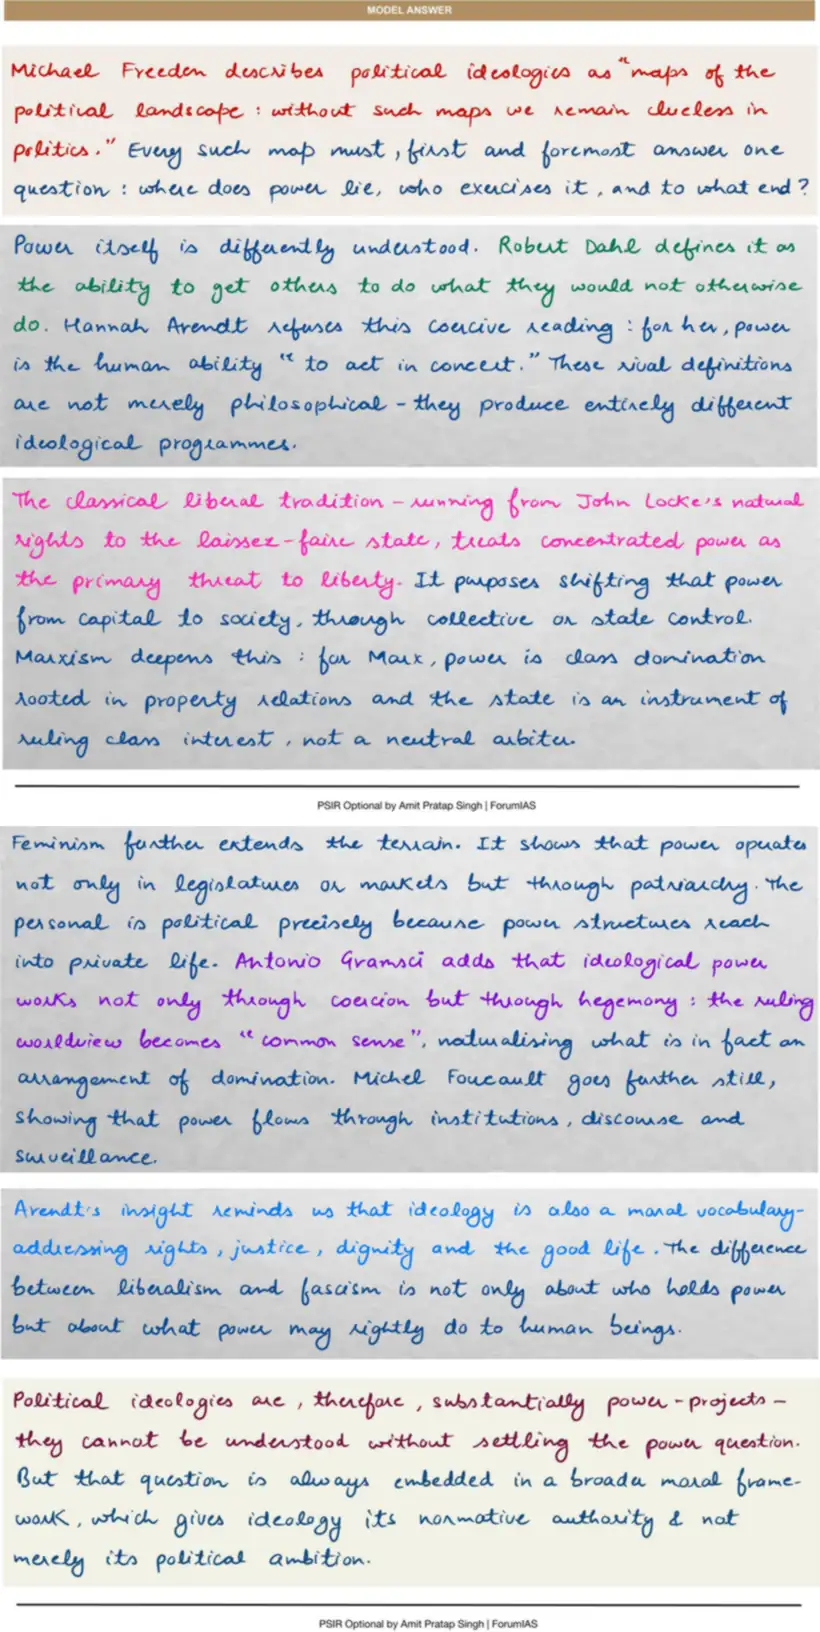 MODEL ANSWER
Michael Freeden describes political ideologies as "maps of the
political landscape : without such maps we remain clueless in
politics." Every such map must, first and foremost answer one
question : where does power lie, who exercises it, and to what end?
Power itself is differently understood. Robert Dahl defines it as
the ability to get others to do what they would not otherwise
do. Hannah Arendt refuses this coercive reading : for her, power
is the human ability "to act in concert." These rival definitions
are not merely philosophical - they produce entirely different
ideological programmes.
The classical liberal tradition - running from John Locke's natural
rights to the laissez-faire state, treats concentrated power as
the primary threat to liberty. It purposes shifting that power
from capital to society, through collective or state control.
Marxism deepens this : for Marx, power is class domination
rooted in property relations and the state is an instrument of
ruling class interest, not a neutral arbiter.
PSIR Optional by Amit Pratap Singh | ForumIAS
Feminism further extends the terrain. It shows that power operates
not only in legislatures or markets but through patriarchy. The
personal is political precisely because power structures reach
into private life. Antonio Gramsci adds that ideological power
works not only through coercion but through hegemony : the ruling
worldview becomes "common sense", naturalising what is in fact an
arrangement of domination. Michel Foucault goes further still,
showing that power flows through institutions, discourse and
surveillance.
Arendt's insight reminds us that ideology is also a moral vocabulary-
addressing rights, justice, dignity and the good life. The difference
between liberalism and fascism is not only about who holds power
but about what power may rightly do to human beings.
Political ideologies are, therefore, substantially power-projects -
they cannot be understood without settling the power question.
But that question is always embedded in a broader moral frame-
work, which gives ideology its normative authority & not
merely its political ambition.
PSIR Optional by Amit Pratap Singh | ForumIAS